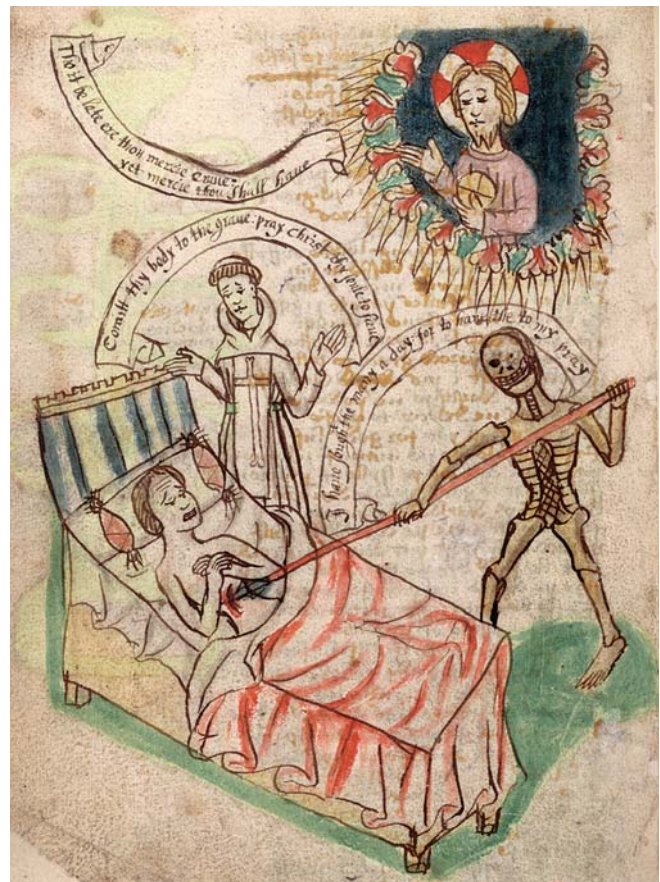 Thoȝt be late ere thou mercie craue:
yet mercie thou shall haue
Comitt thy body to the graue: pray Christ thy soule to saue
I haue sought the many a day: for to haue the to my pray